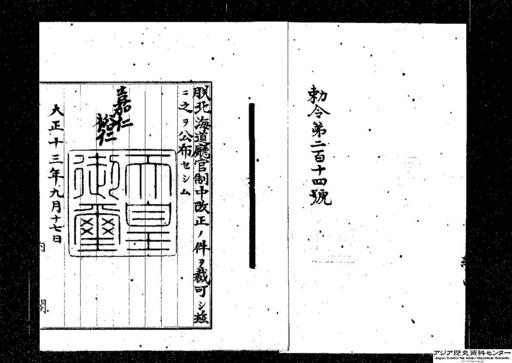 勅令第二百十四號
朕北海道廳官制中改正ノ件ヲ裁可シ茲
ニ之ヲ公布セシム
嘉仁
裕仁
天皇
御璽
大正十三年九月十七日
内閣
アジア歴史資料センター
Japan Center for Asian Historical Records